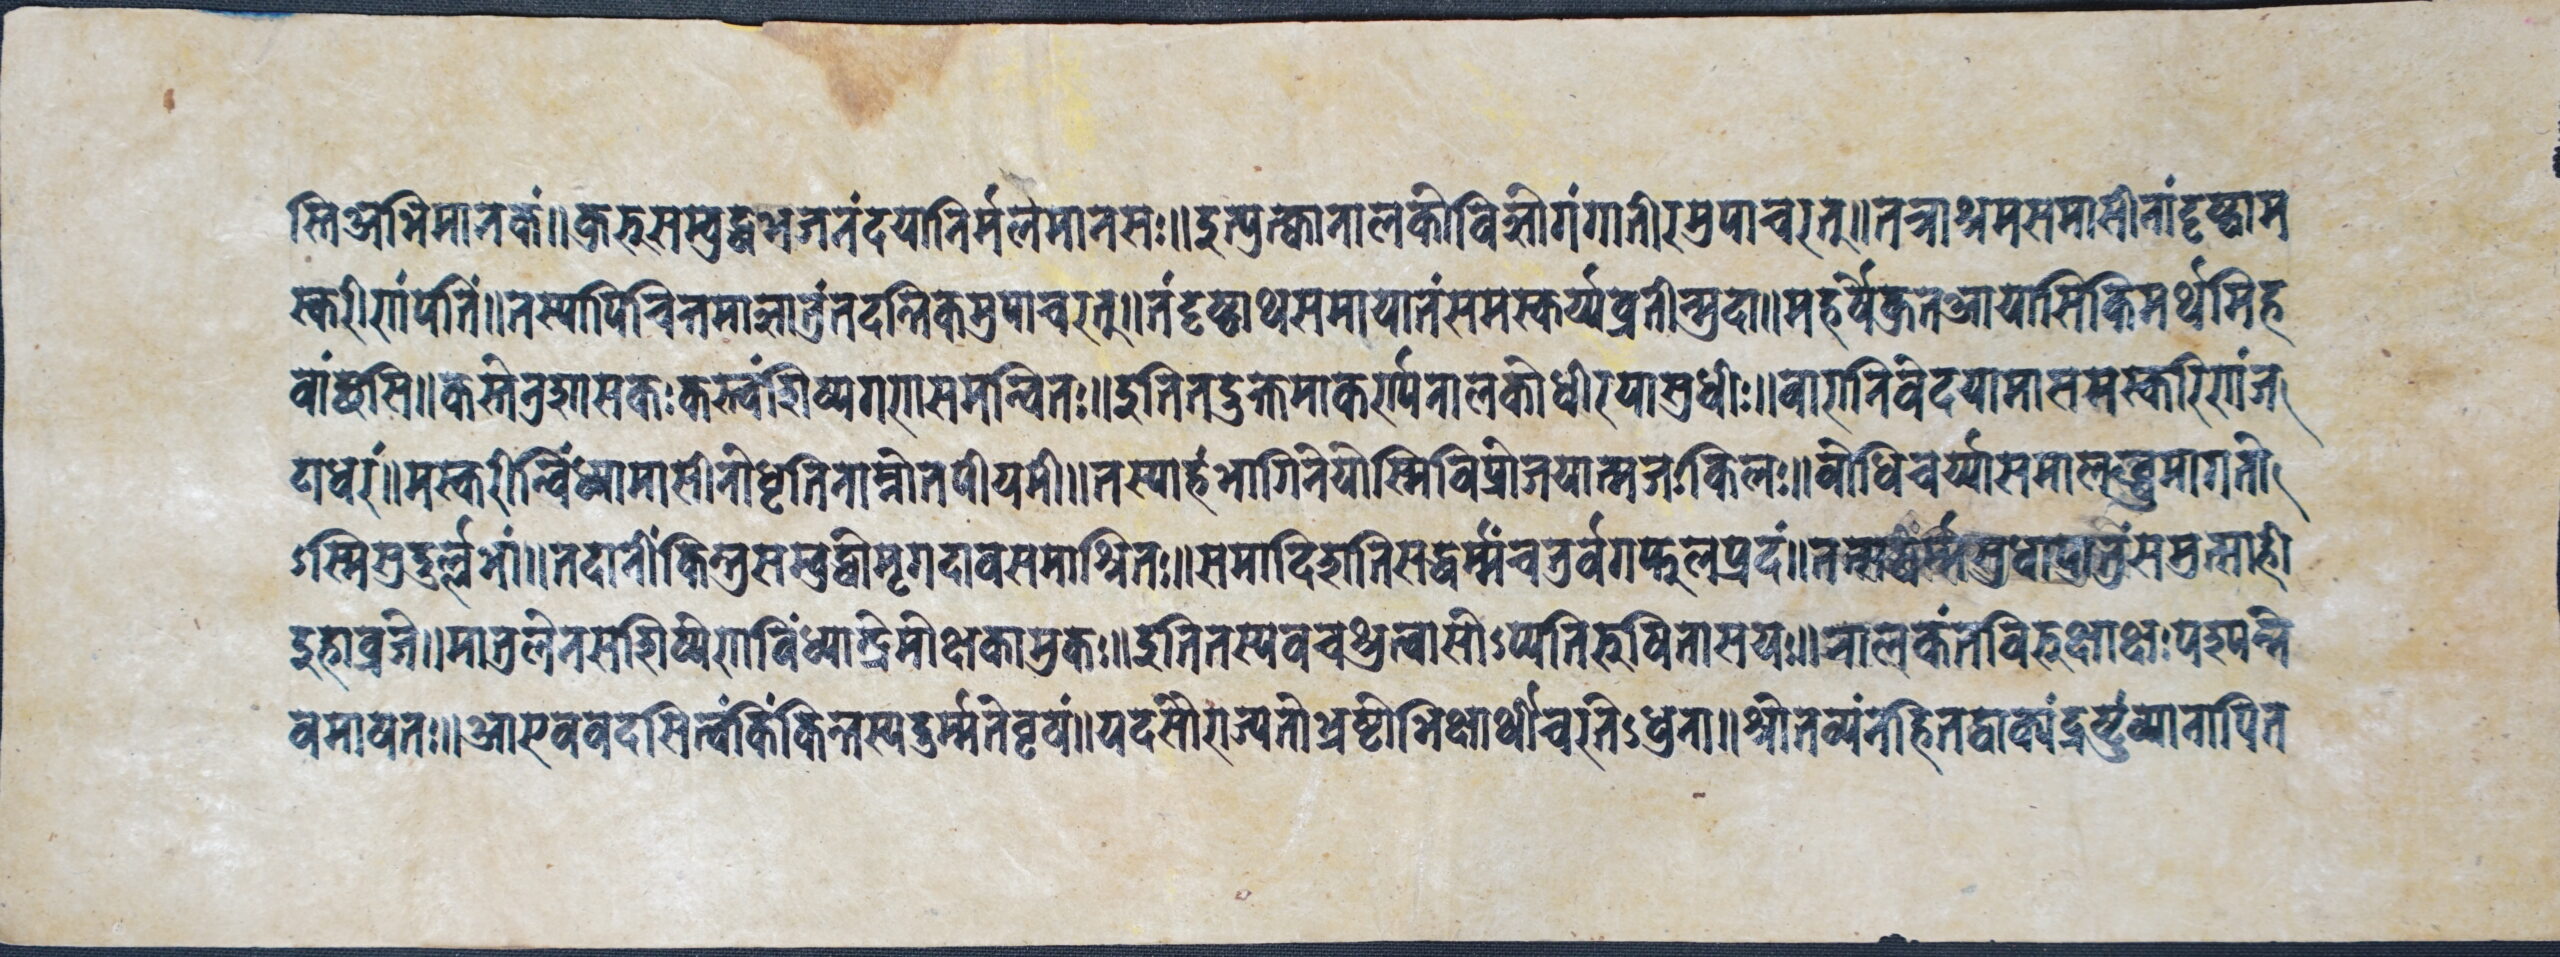 स्तिअभिमानकं॥कुरुसम्बुद्धभजनंदयानिर्मलमानसः॥इत्युक्त्वानालकोविज्ञोगंगातीरमुपाचरत्॥तत्राश्रमसमासीनांदृष्ट्वाम
स्करीणांपतिं॥तस्यापिचित्तमाज्ञातुंतदन्तिकमुपाचरत्॥तंदृष्ट्वाथसमायातंसमस्कर्य्यब्रवीन्मुदा॥महर्षेकुतआयासिकिमर्थमिह
वांछसि॥कस्तेनुशासकःकस्त्वंशिष्यगणसमन्वितः॥इतितदुक्तमाकर्ण्यनालकोधीरयासुधीः॥वाणनिवेदयामासमस्करिणांज
टाधरं॥मस्करीन्विंध्यामासीनोधृतिनाम्नोतपोयमी॥तस्याहंभागिनेयोस्मिविप्रोजयात्मजःकिलः॥बोधिचर्य्यासमालब्धुमागतो
ऽस्मिसुदुर्ल्लभां॥तदानींकिन्तुसम्बुद्धोमृगदावसमाश्रितः॥समादिशतिसद्धर्म्मंचतुर्वर्गफलप्रदं॥तत्सद्धर्म्मसुधांपातुंसमुत्साहो
इहाव्रजे॥मातुलेनसशिष्येणविंध्याद्रिमोक्षकामुकः॥इतितस्यवचश्रुत्वासोऽप्यतिरुषितासयः॥नालकंतंविरुक्षाक्षःपश्यन्ने
वमाषतः॥आएववदसित्वंकिंकिन्तस्यदुर्म्मतेवृयं॥यदसौराज्यतोभ्रष्टोभिक्षार्थीचरतेऽधुना॥श्रोतव्यंनहितद्वाक्यंद्रष्टुंव्यानापित